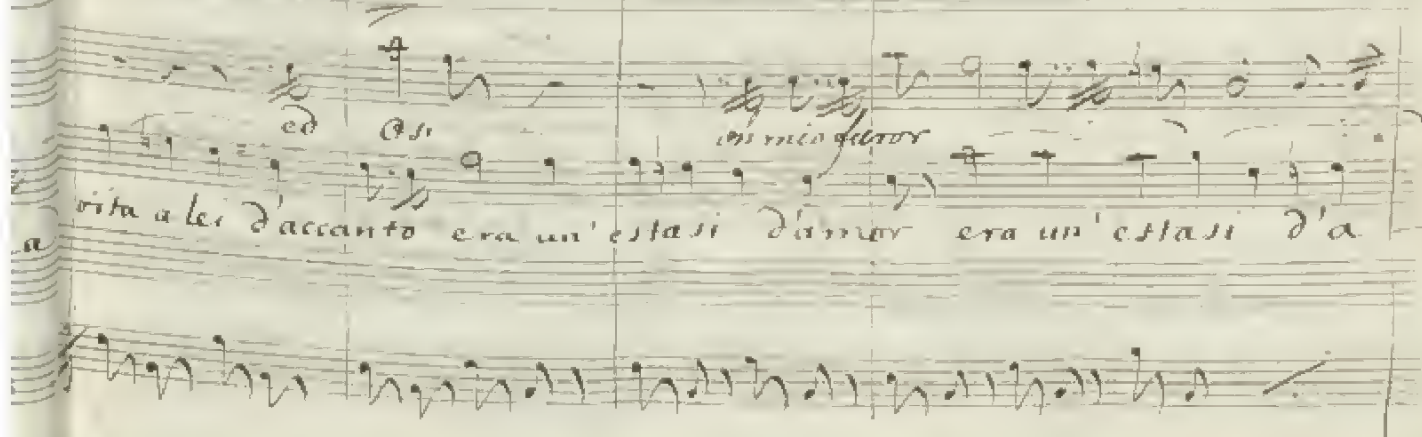 ed osi mio furor
vita a lei d'accanto era un'estasi d'amor era un'estasi d'a
a